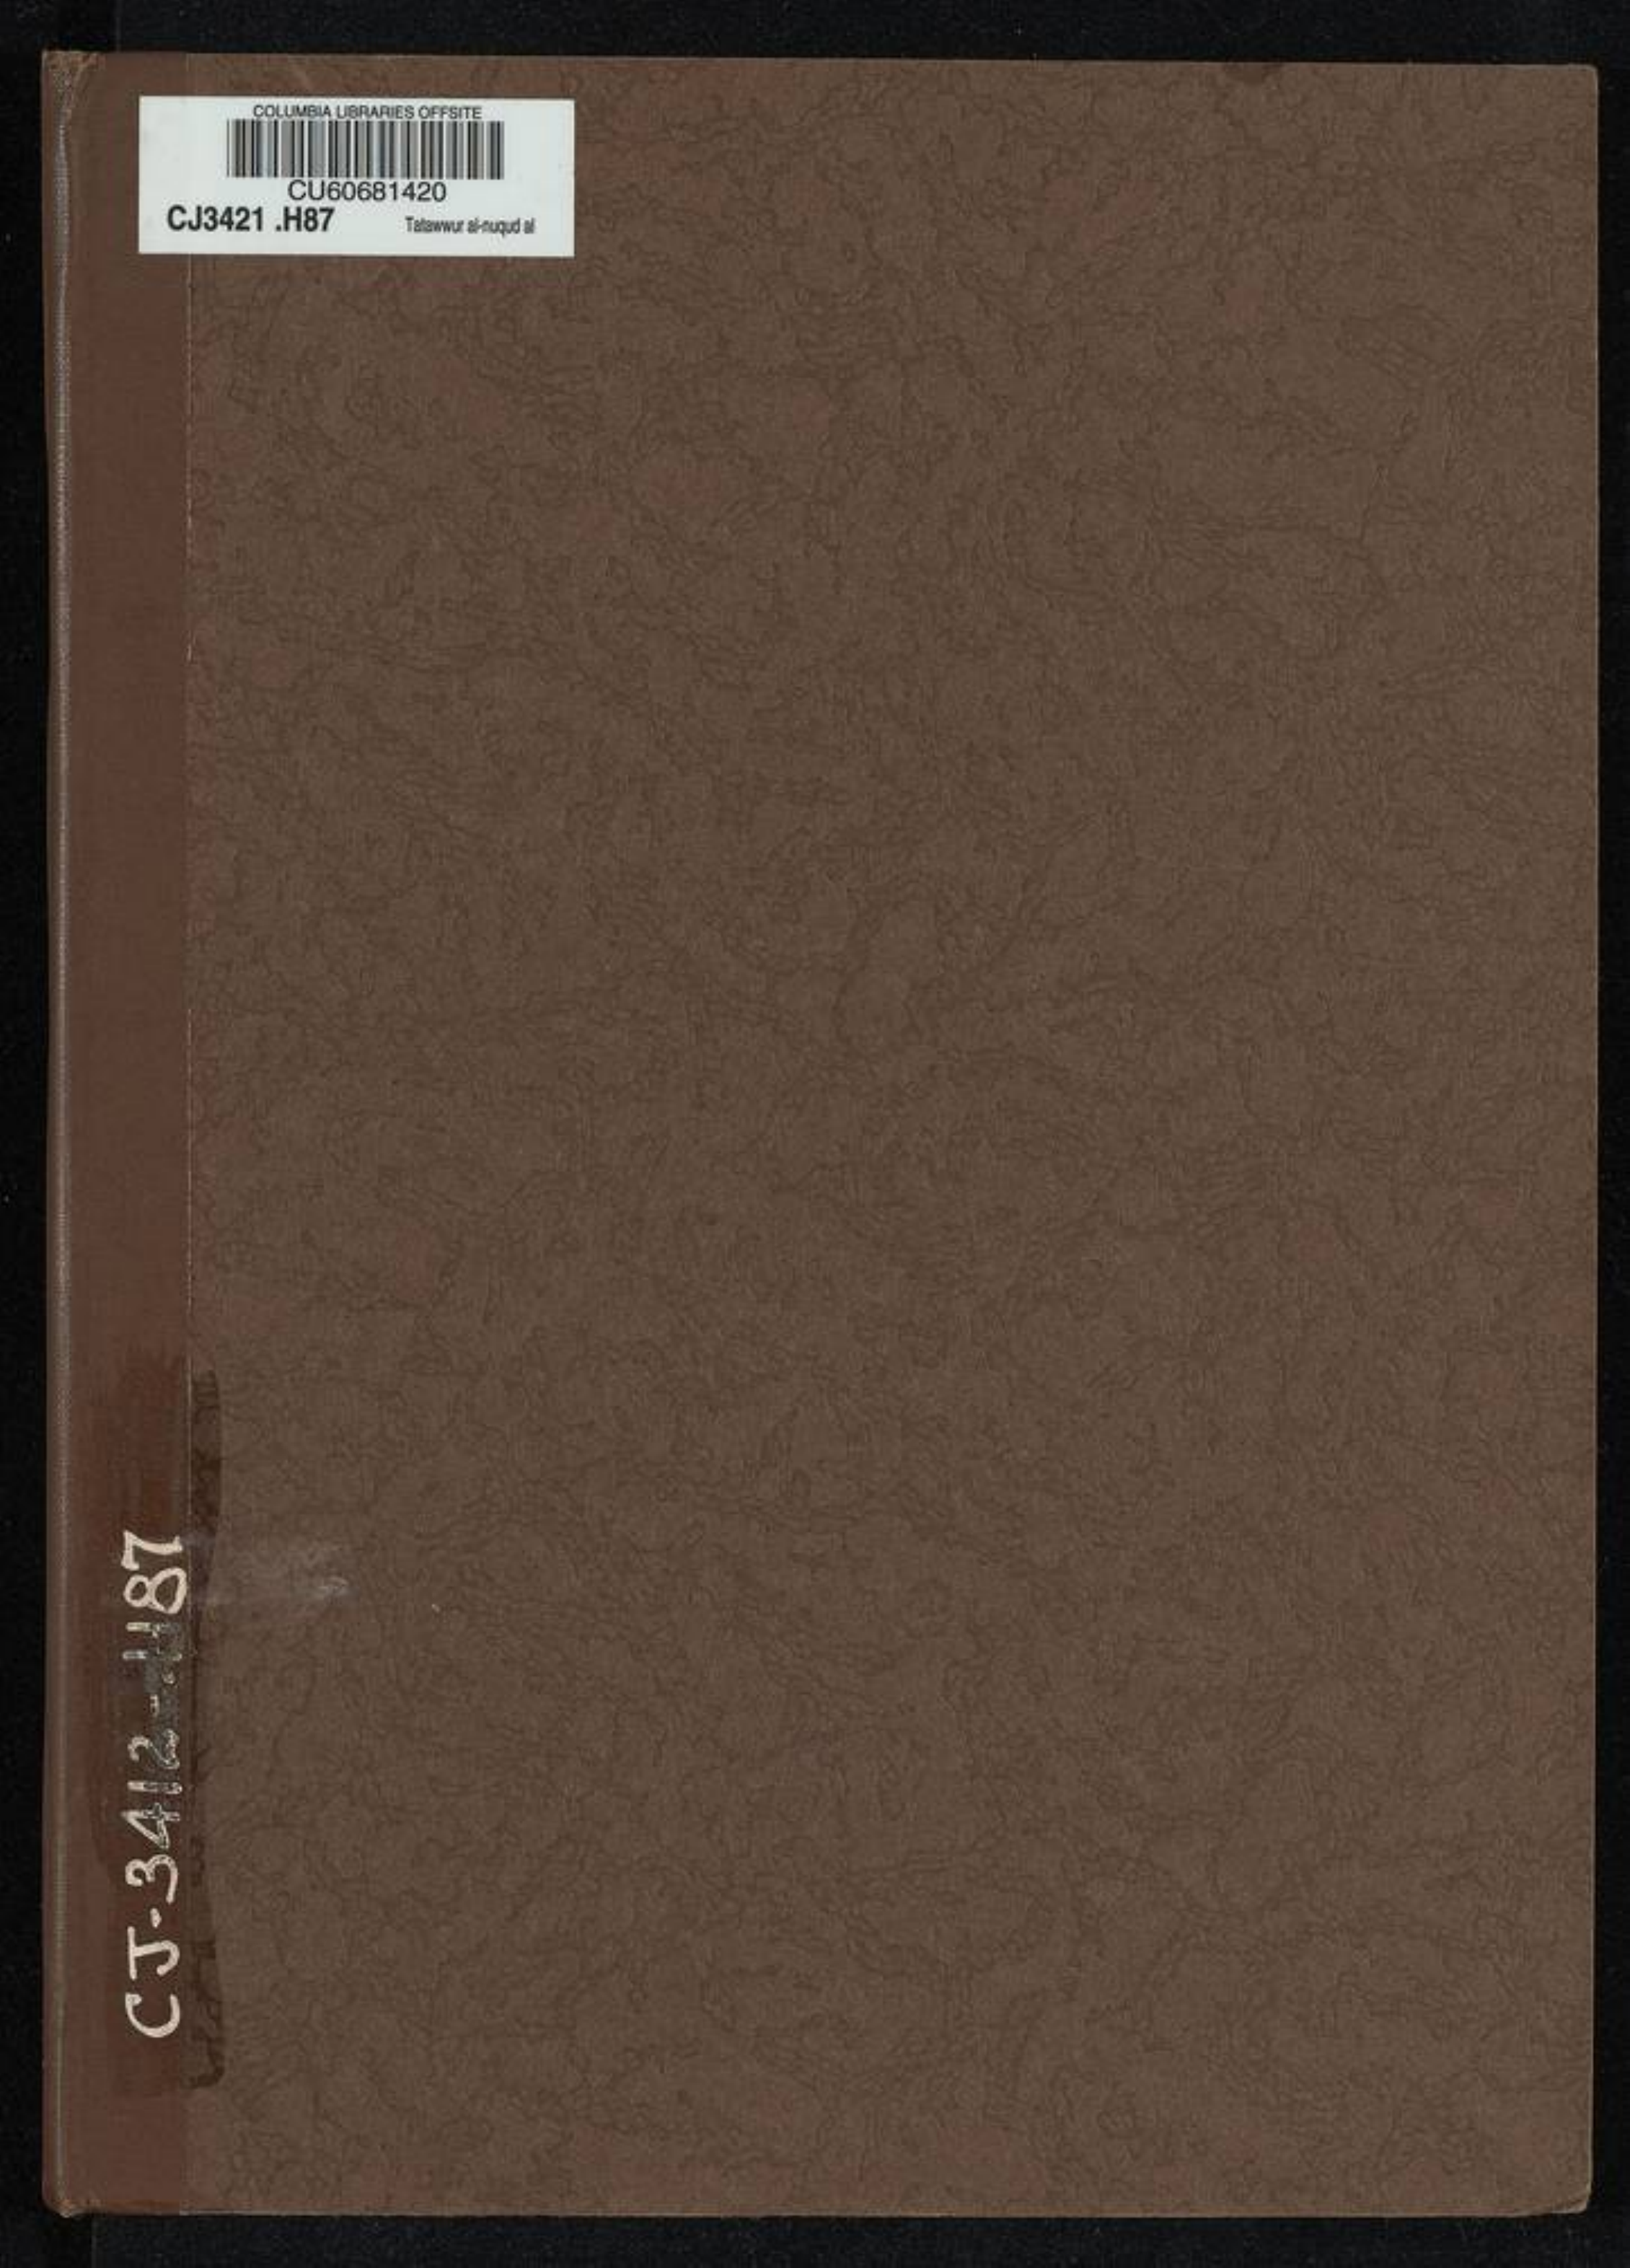 COLUMBIA LIBRARIES OFFSITE
CU60681420
CJ3421 .H87 Tatawwur al-nuqud al
CJ-3412-.H87